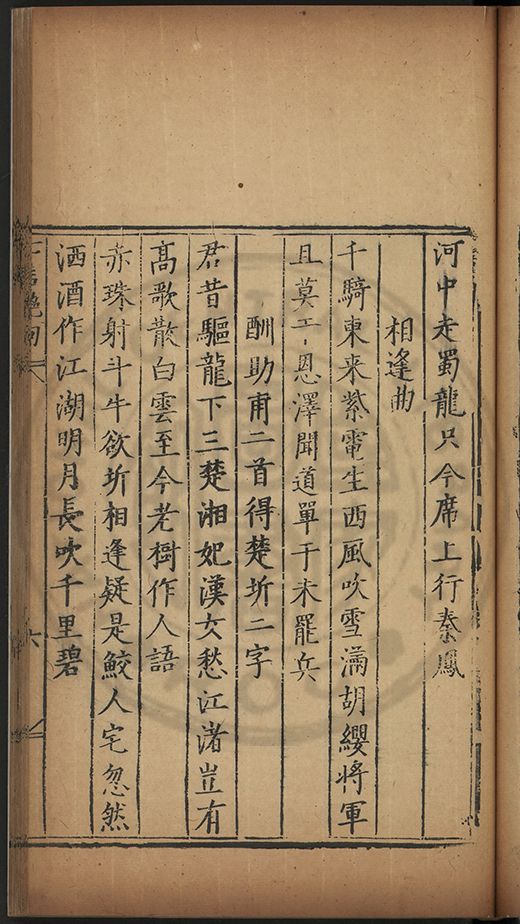 河中走蜀龍只今席上行秦鳳
相逢曲
千騎東来紫電生西風吹雪滿胡纓將軍
且莫恩澤聞道單于未罷兵
酬助甫二首得楚坼二字
君昔驅龍下三楚湘妃漢女愁江渚豈有
高歌散白雲至今老樹作人語
赤珠射斗牛欲坼相逢疑是鮫人宅忽然
洒酒作江湖明月長吹千里碧
六